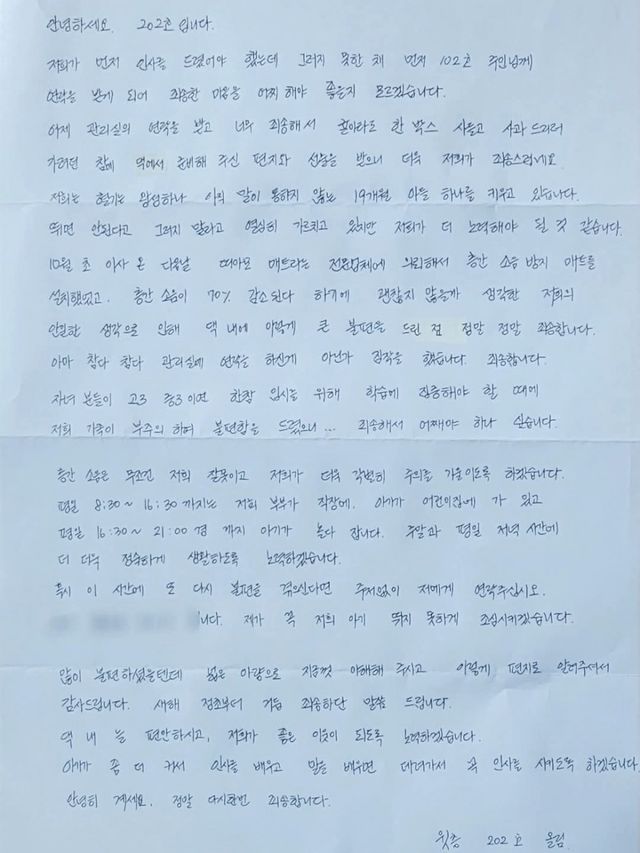 안녕하세요. 202호 입니다.
저희가 먼저 인사를 드렸어야 했는데 그러지 못한 채 먼저 102호 주인님께
연락을 받게 되어 죄송한 마음을 어찌 해야 좋을지 모르겠습니다.
어제 관리실의 연락을 받고 너무 죄송해서 롤이라도 한 박스 사들고 사과 드리러
가려던 참에 댁에서 준비해 주신 편지와 선물을 받으니 더욱 저희가 죄송스럽네요.
저희는 혈기는 왕성하나 아직 말이 통하지 않는 19개월 아들 하나를 키우고 있습니다.
뛰면 안된다고 그러지 말라고 열심히 가르치고 있지만 저희가 더 노력해야 될 것 같습니다.
10월 초 이사 온 다음날 따아모 매트라는 전문업체에 의뢰해서 층간 소음 방지 매트를
설치했었고. 층간 소음이 70% 감소된다 하기에 괜찮지 않을까 생각한 저희의
안일한 생각으로 인해 댁 내에 이렇게 큰 불편을 드린 점 정말 정말 죄송합니다.
아마 참다 참다 관리실에 연락을 하신게 아닌가 짐작을 했습니다. 죄송합니다.
자녀 분들이 고3 중3 이면 한참 입시를 위해 학습에 집중해야 할 때에
저희 가족이 부주의 하여 불편함을 드렸으니... 죄송해서 어째야 하나 싶습니다.
층간 소음은 무조건 저희 잘못이고 저희가 더욱 각별히 주의를 기울이도록 하겠습니다.
평일 8:30~16:30 까지는 저희 부부가 직장에. 아기가 어린이집에 가 있고
평일 16:30~21:00 경 까지 아기가 놀다 잡니다. 주말과 평일 저녁 시간에
더 더욱 정숙하게 생활하도록 노력하겠습니다.
혹시 이 시간에 또 다시 불편을 겪으신다면 주저없이 저에게 연락주십시오.
니다. 제가 꼭 저희 아기 뛰지 못하게 조심시키겠습니다.
많이 불편하셨을텐데 넓은 아량으로 지금껏 이해해 주시고 이렇게 편지로 알려주셔서
감사드립니다. 새해 정초부터 거듭 죄송하단 말씀 드립니다.
댁 내 늘 편안하시고, 저희가 좋은 이웃이 되도록 노력하겠습니다.
아기가 좀 더 커서 인사를 배우고 말을 배우면 데려가서 꼭 인사를 시키도록 하겠습니다.
안녕히 계세요. 정말 다시한번 죄송합니다.
윗층 202호 올림